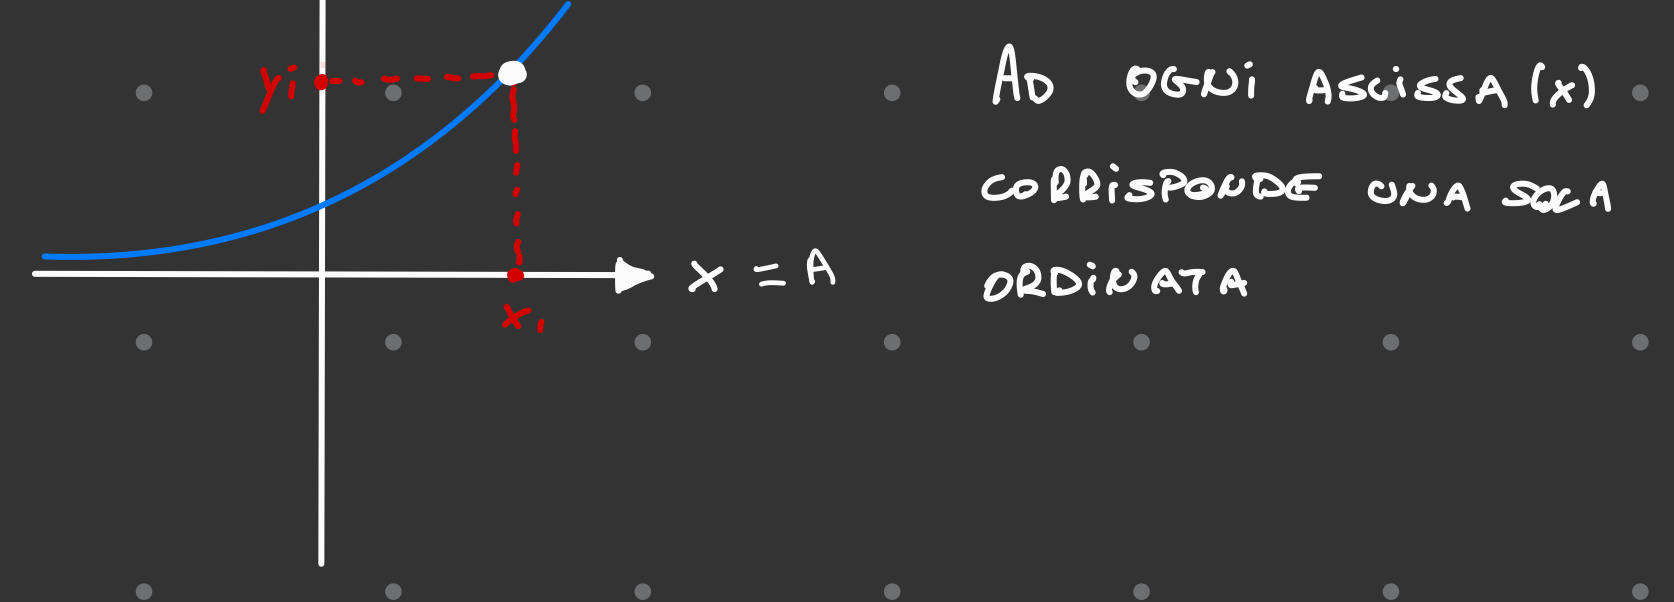 yi
AD OGNI ASCISSA (x)
CORRISPONDE UNA SOLA
x = A
ORDINATA
x1